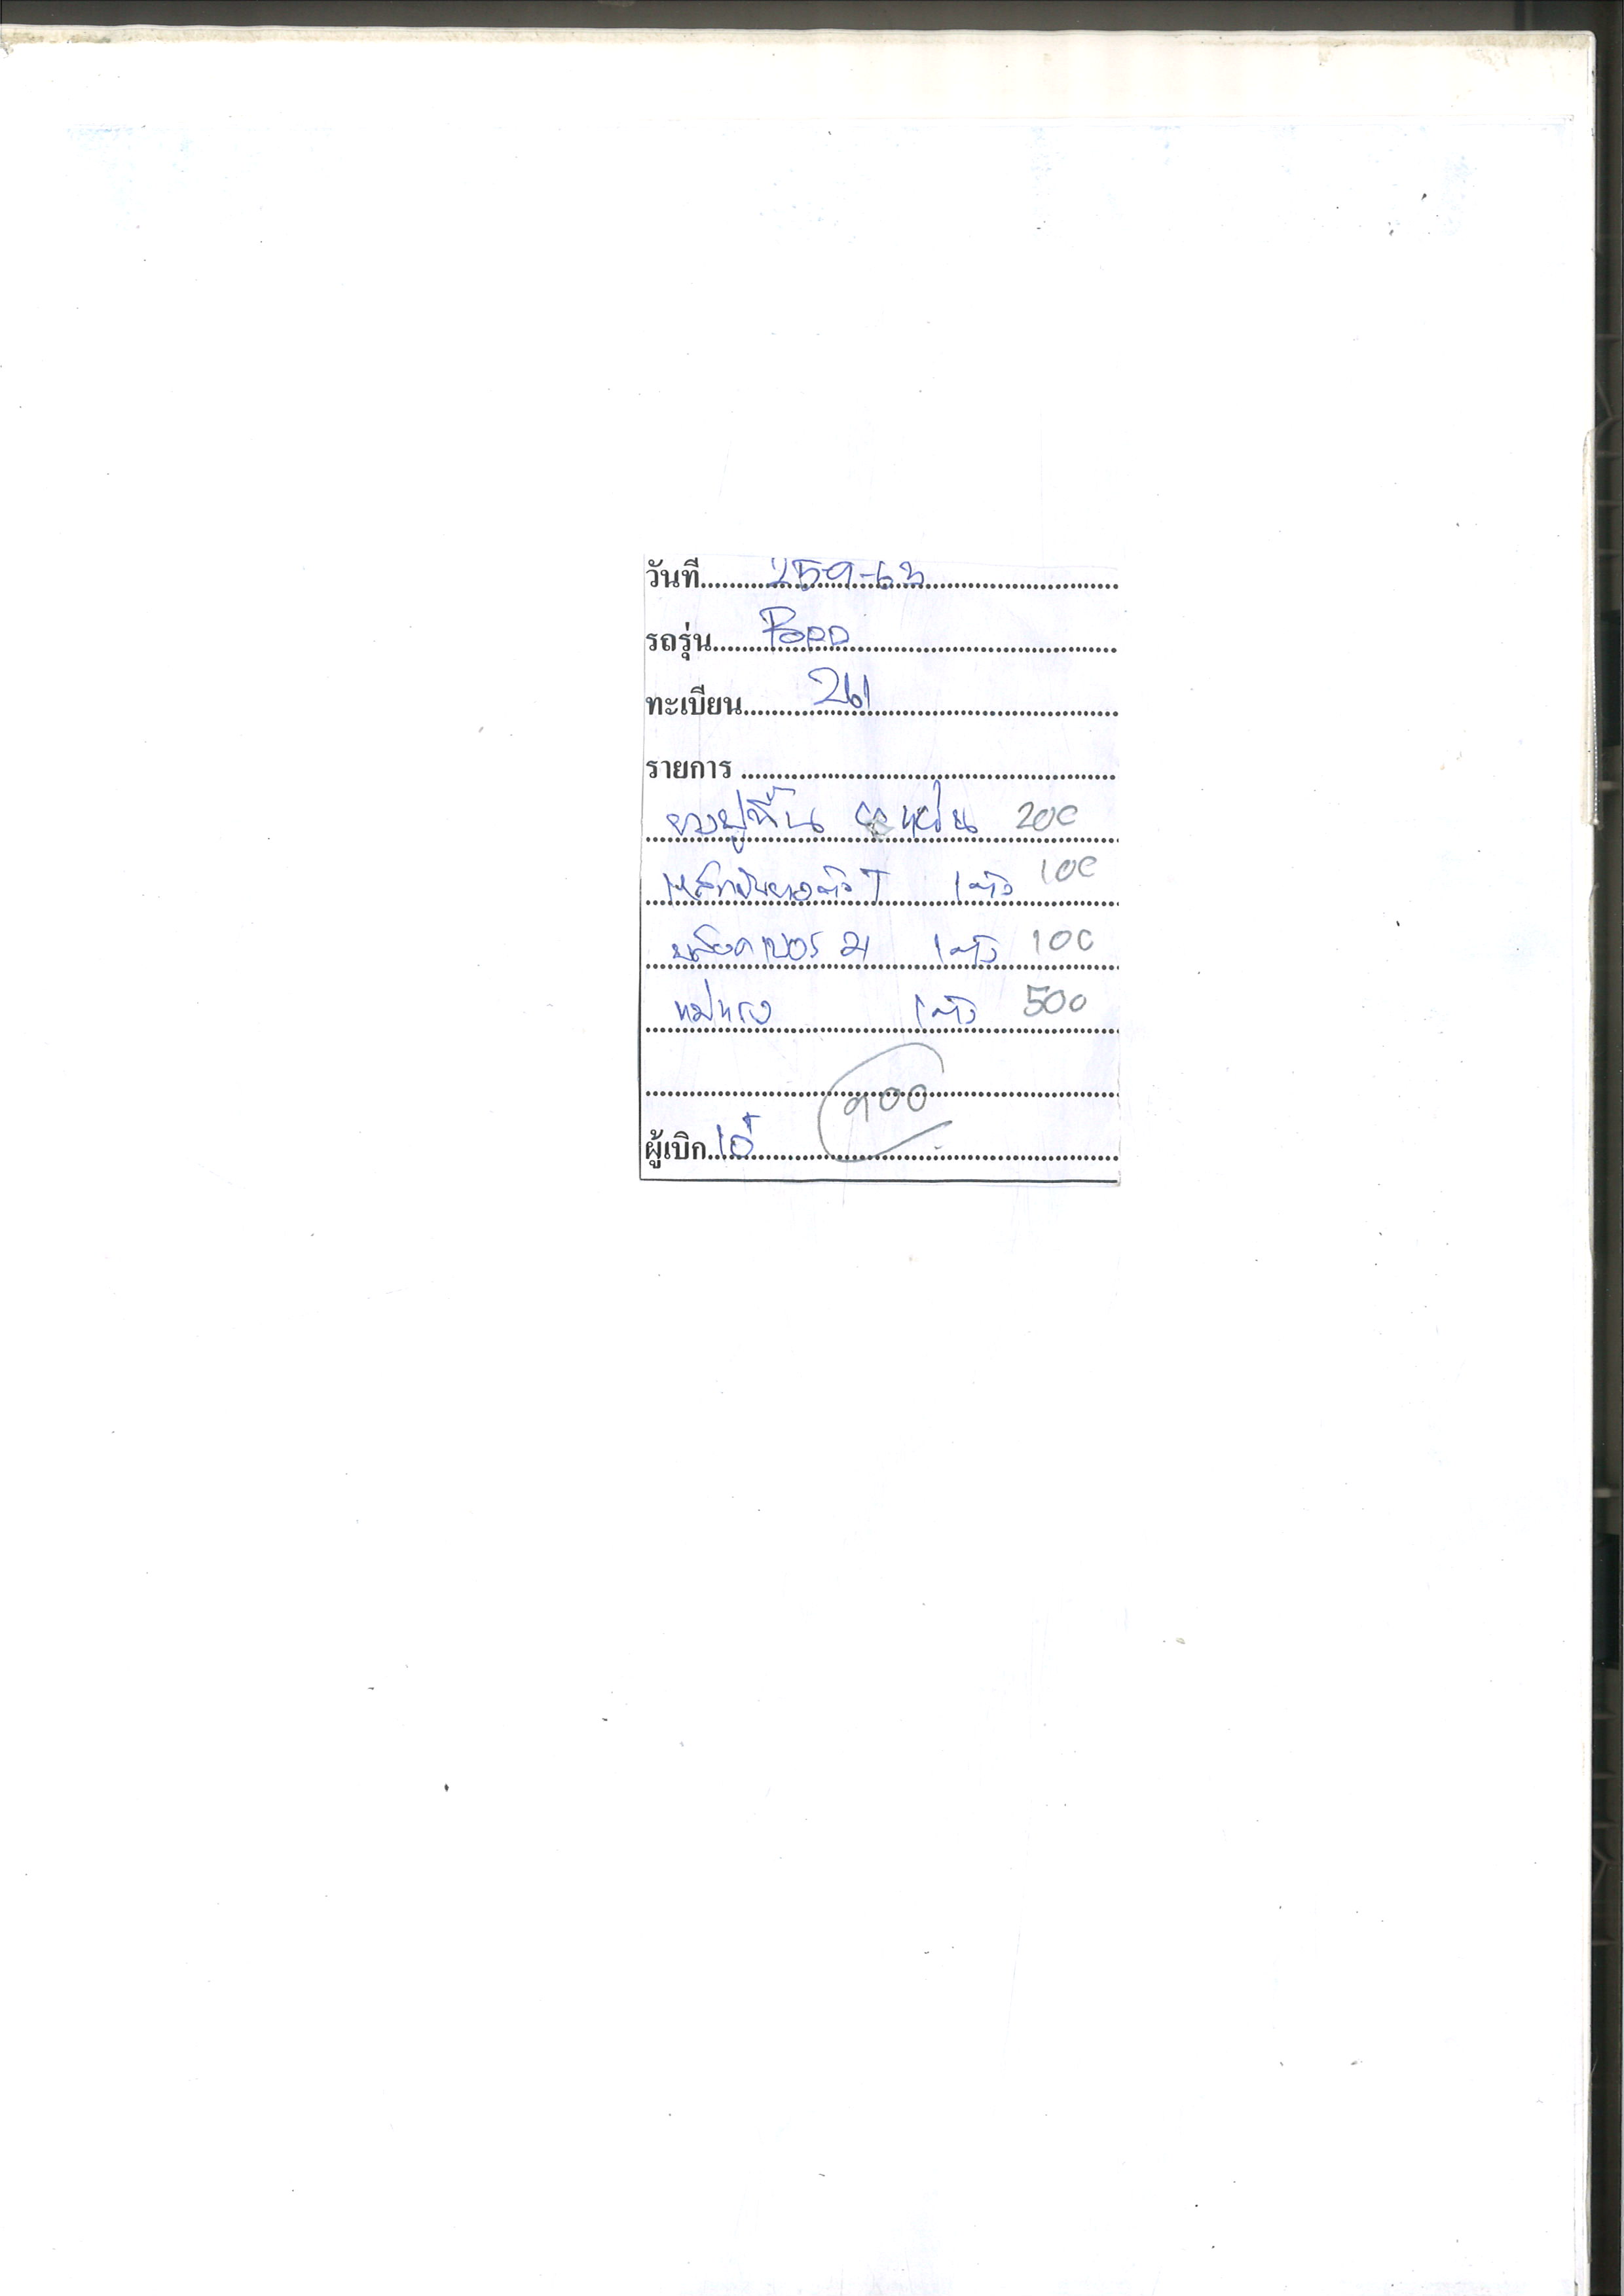 วันที่ 25-9-63
รถรุ่น Ford
ทะเบียน 261
รายการ
ยางปูพื้น แผ่น 200
เหล็กขันยางตัว T 1 ตัว 100
บล็อคเบอร์ 21 1 ตัว 100
แม่แรง 1 ตัว 500
900
ผู้เบิก เอ๋